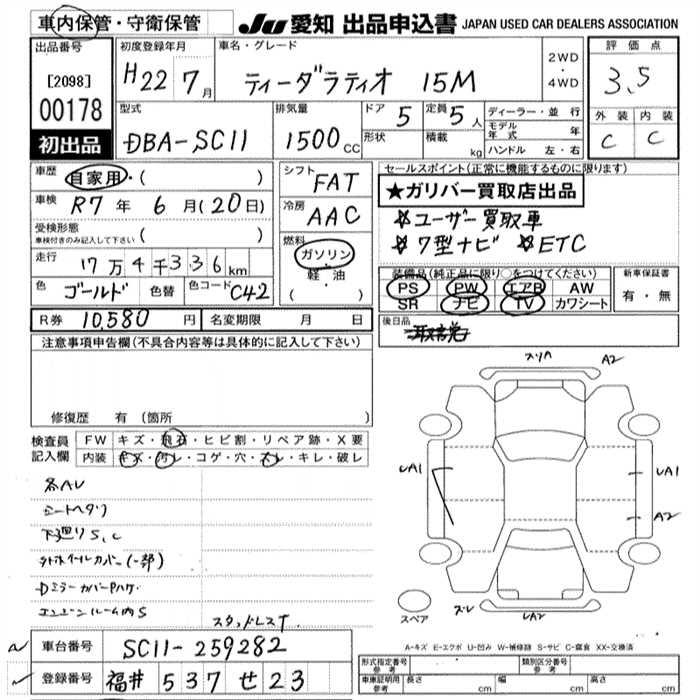 車内保管・守衛保管 JU 愛知 出品申込書 JAPAN USED CAR DEALERS ASSOCIATION
出品番号 初度登録年月 車名・グレード 2WD・4WD 評価点
[2098] H22 7月 ティーダラティオ 15M 3.5
00178 型式 排気量 ドア 5 定員 5人 ディーラー・並行 外装 内装
初出品 DBA-SC11 1500cc 形状 積載 kg モデル年式 年 C C
ハンドル 左・右
車歴 自家用・( ) シフト FAT セールスポイント(正常に機能するものに限ります)
車検 R7年 6月(20日) 冷房 AAC ★ガリバー買取店出品
受検形態 車検付きのみ記入して下さい ( ) ☆ユーザー買取車
走行 17万4千336km 燃料 ガソリン・軽油 ( ) ☆7型ナビ ☆ETC
色 ゴールド 色替 色コード C42 装備品(純正品に限り○をつけてください) 新車保証書
PS PW エアB AW 有・無
SR ナビ TV カワシート
R券 10,580円 名変期限 月 日 後日品
注意事項申告欄(不具合内容等は具体的に記入して下さい)
修復歴 有(箇所
検査員記入欄 FW キズ・飛石・ヒビ割・リペア跡・X要
内装 キズ・汚レ・コゲ・穴・スレ・キレ・破レ
スリハ A2
UA1 UA1
A2
各AU
シートヘタリ
下廻りS,C
外ホイールカバー(一部)
Dミラーカバーハガ・
エンジンルーム内S
スタッドレスT
スペア スレ UA2
A-キズ E-エクボ U-凹み W-補修跡 S-サビ C-腐食 XX-交換済
車台番号 SC11-259282
登録番号 福井 537 せ 23
形式指定番号 参考 類別区分番号 参考
車庫証明用 参考 長さ cm 幅 cm 高さ cm